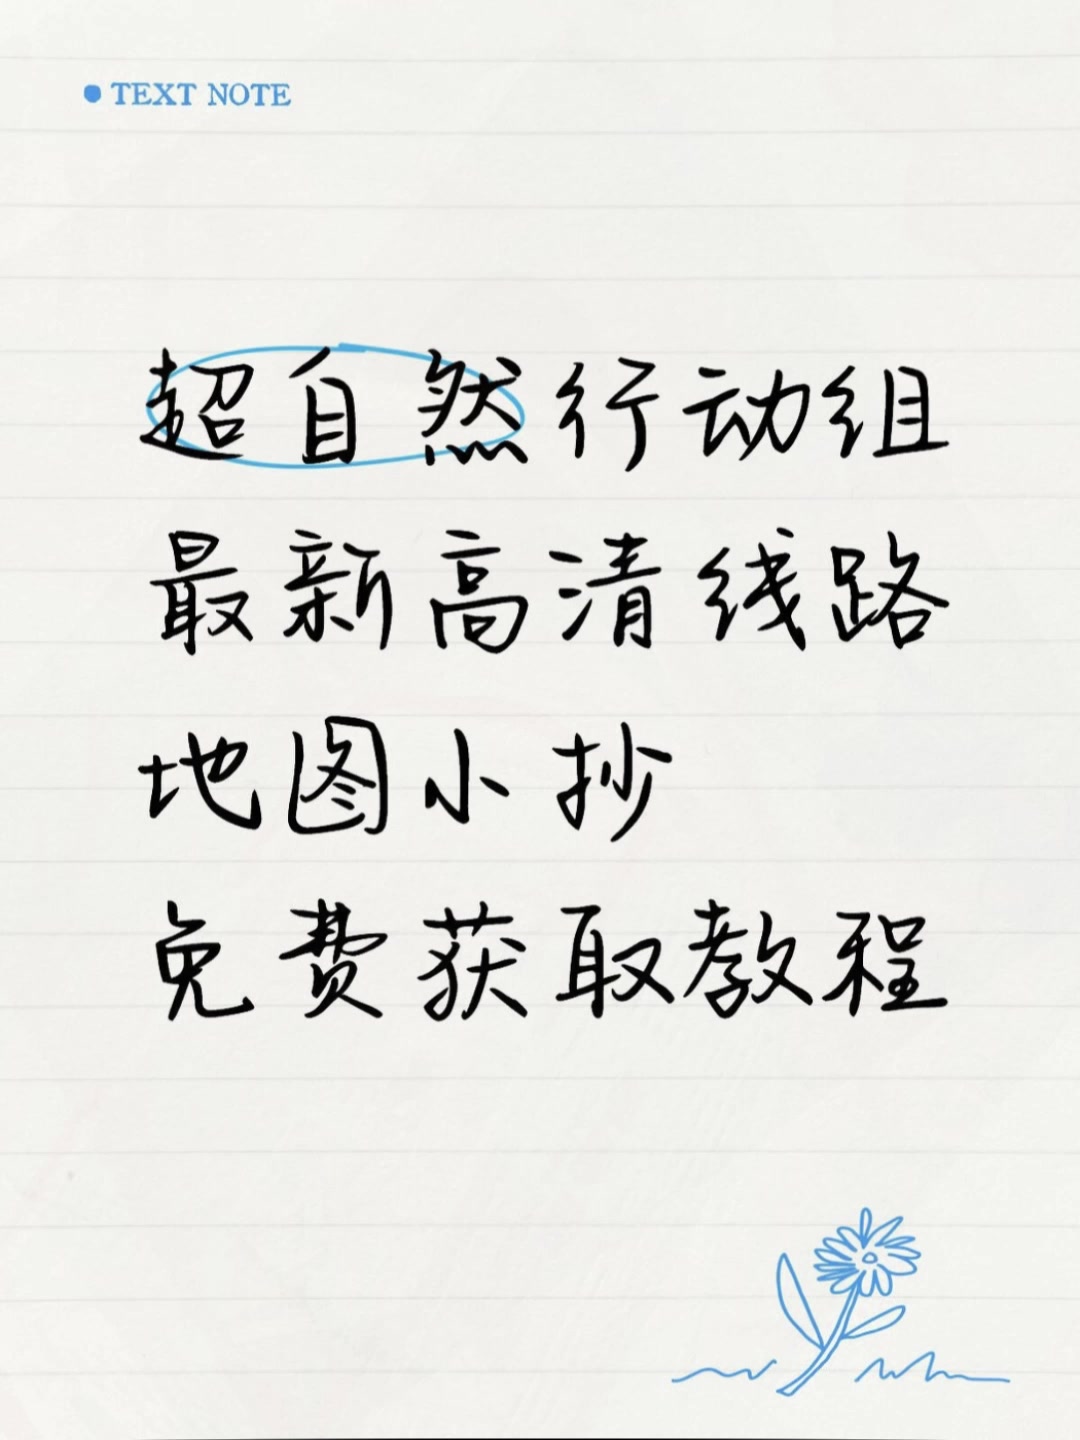 TEXT NOTE
超自然行动组
最新高清线路
地图小抄
免费获取教程